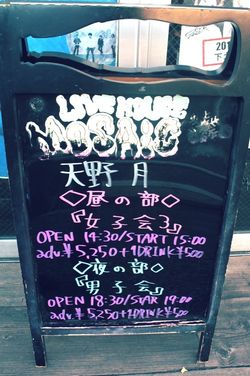 LIVE HOUSE
MOSAiC
天野 月
◇昼の部◇
『女子会3』
OPEN 14:30/START 15:00
adv.¥5,250+1DRINK¥500
◇夜の部◇
『男子会』
OPEN 18:30/STAR 19:00
adv.¥5250+1DRINK¥500